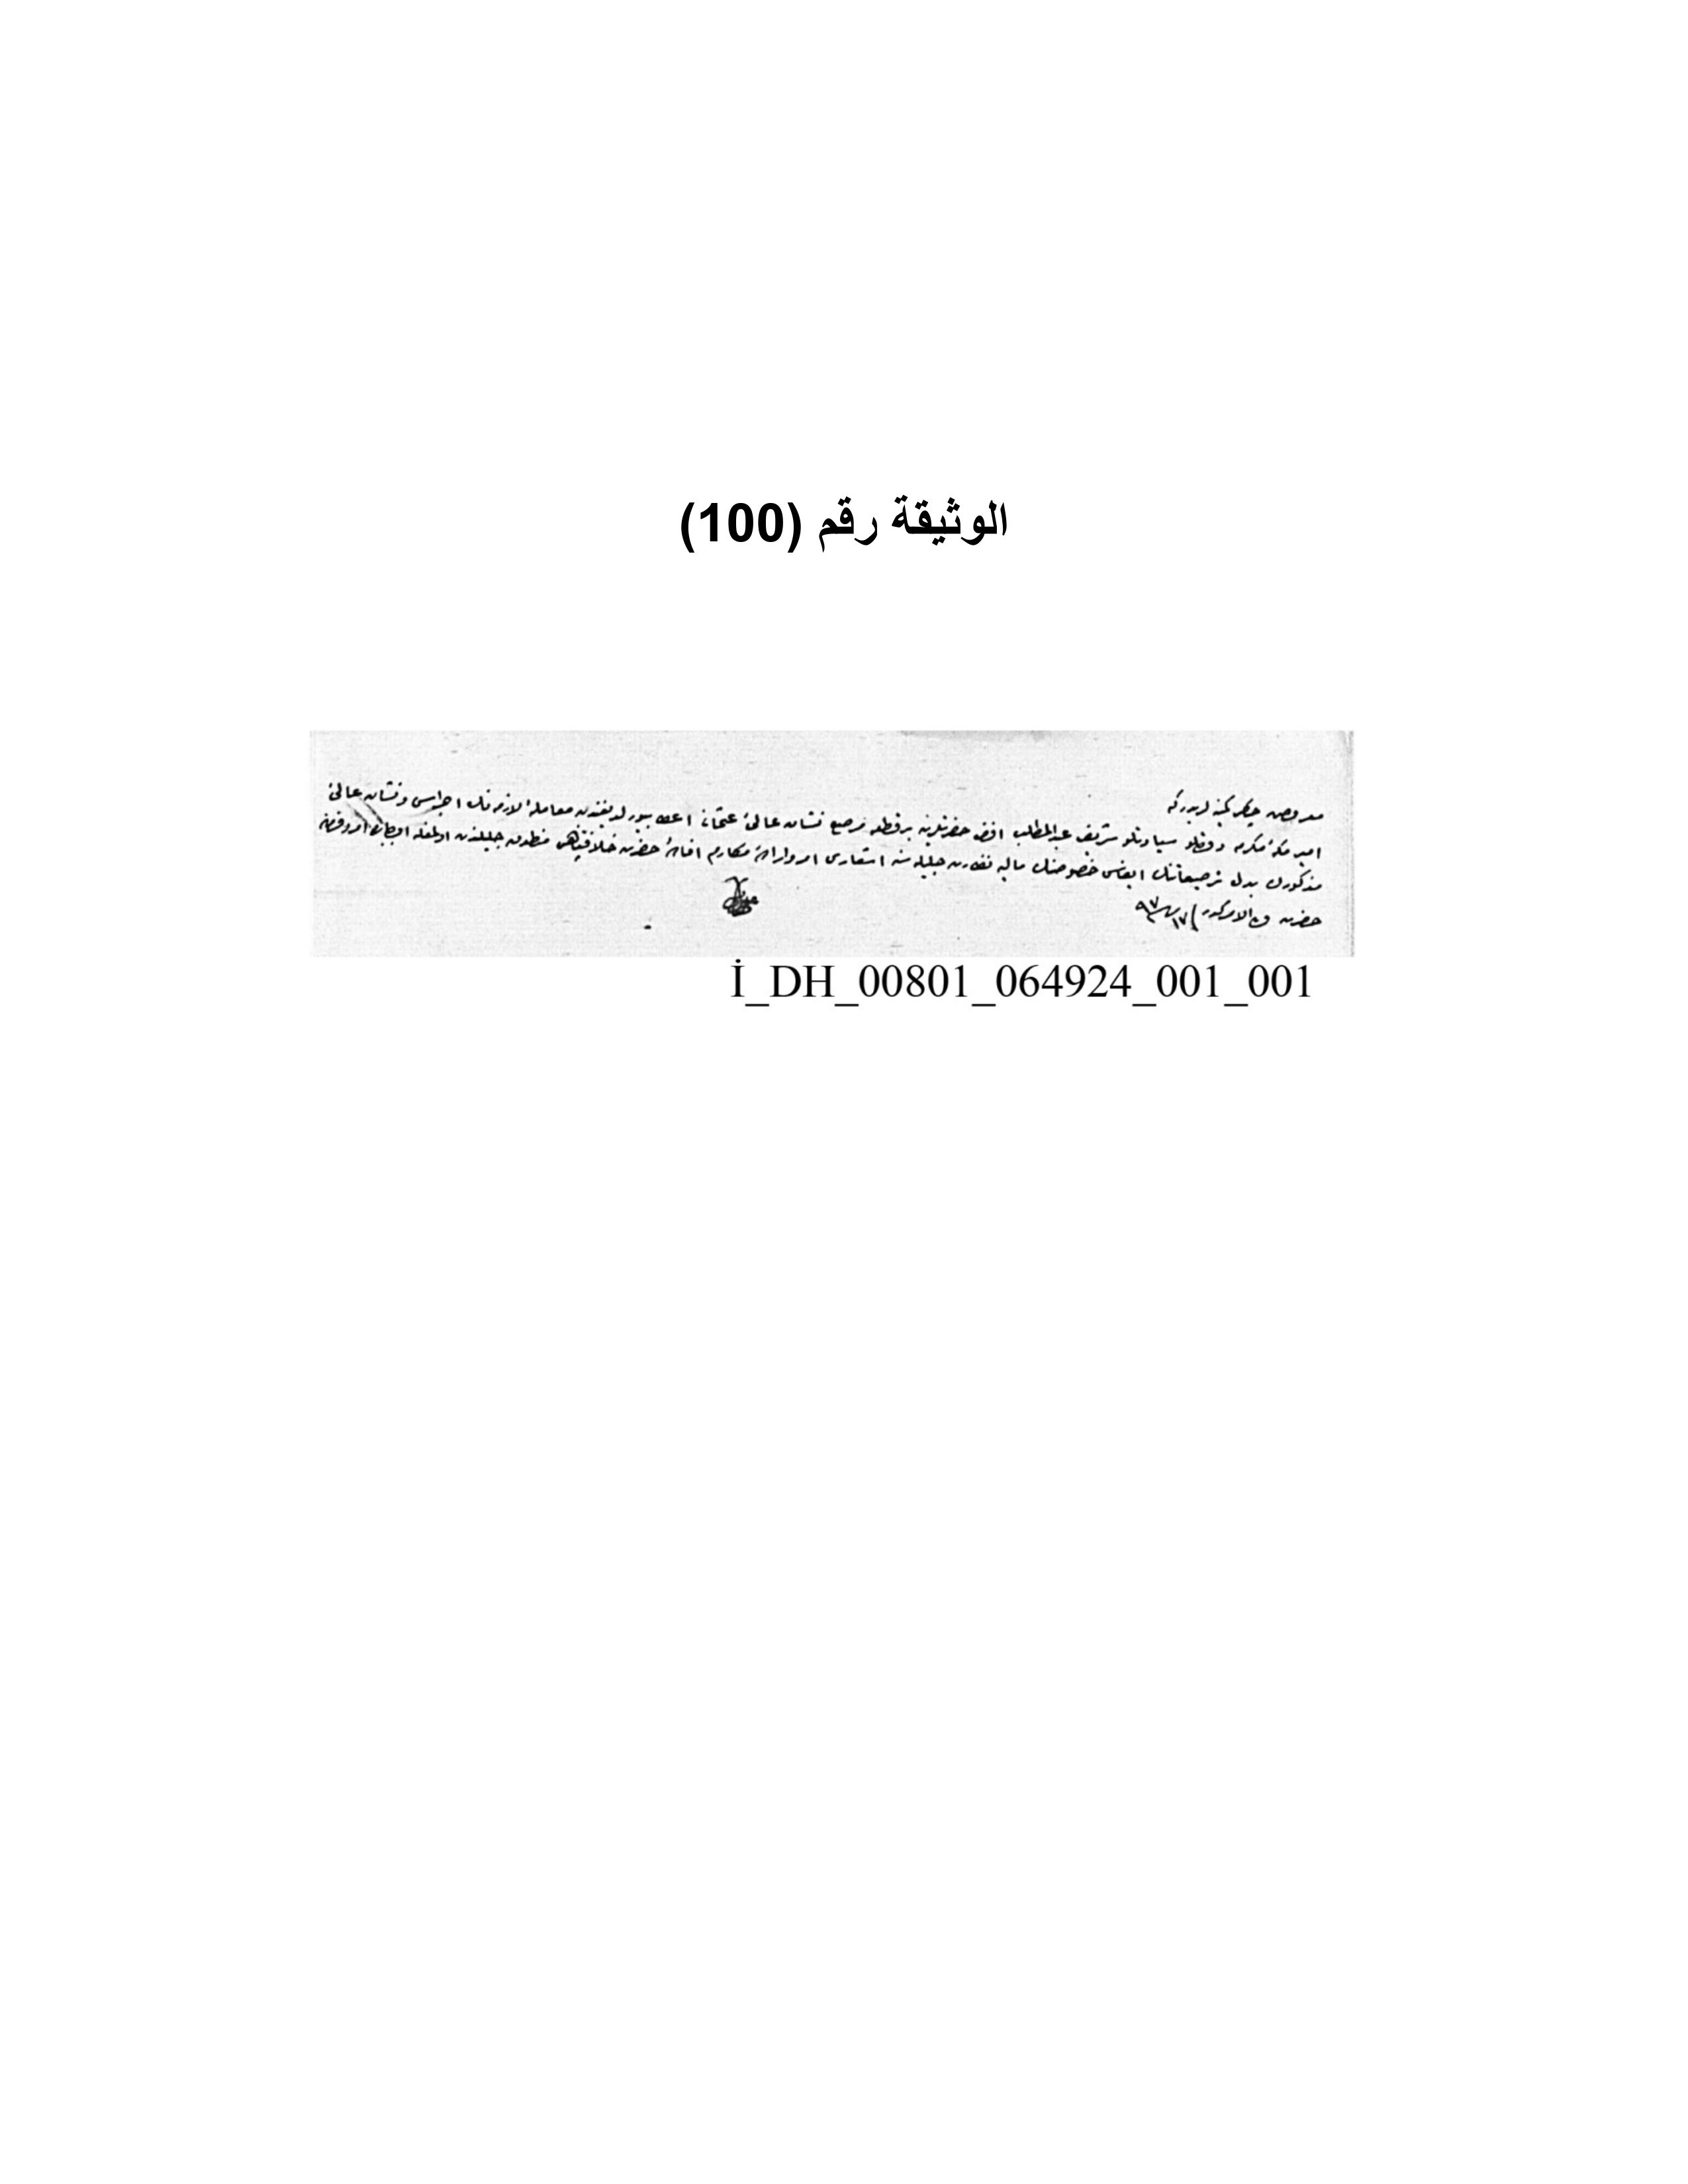 الوثيقة رقم (100)
معروض چاكر كمينه لريدركه
امير مكهٔ مكرمه دولتلو سيادتلو شريف عبدالمطلب افندى حضرتلرينه برقطعه مرصع نشان عالئ عثمانى اعطا بيورلديغندن معاملهٔ لازمه نك اجراسى ونشان عالئ
مذكورك بدل ترصيعاتنك ايفاسى خصوصنك ماليه نظارت جليله سنه اشعارى امر وارادهٔ مكارم افادهٔ حضرت خلافتپناهى منطوق جليلندن اولمغله اولبابده امر وفرمان
حضرت ولى الامركدر ٩٧
İ_DH_00801_064924_001_001